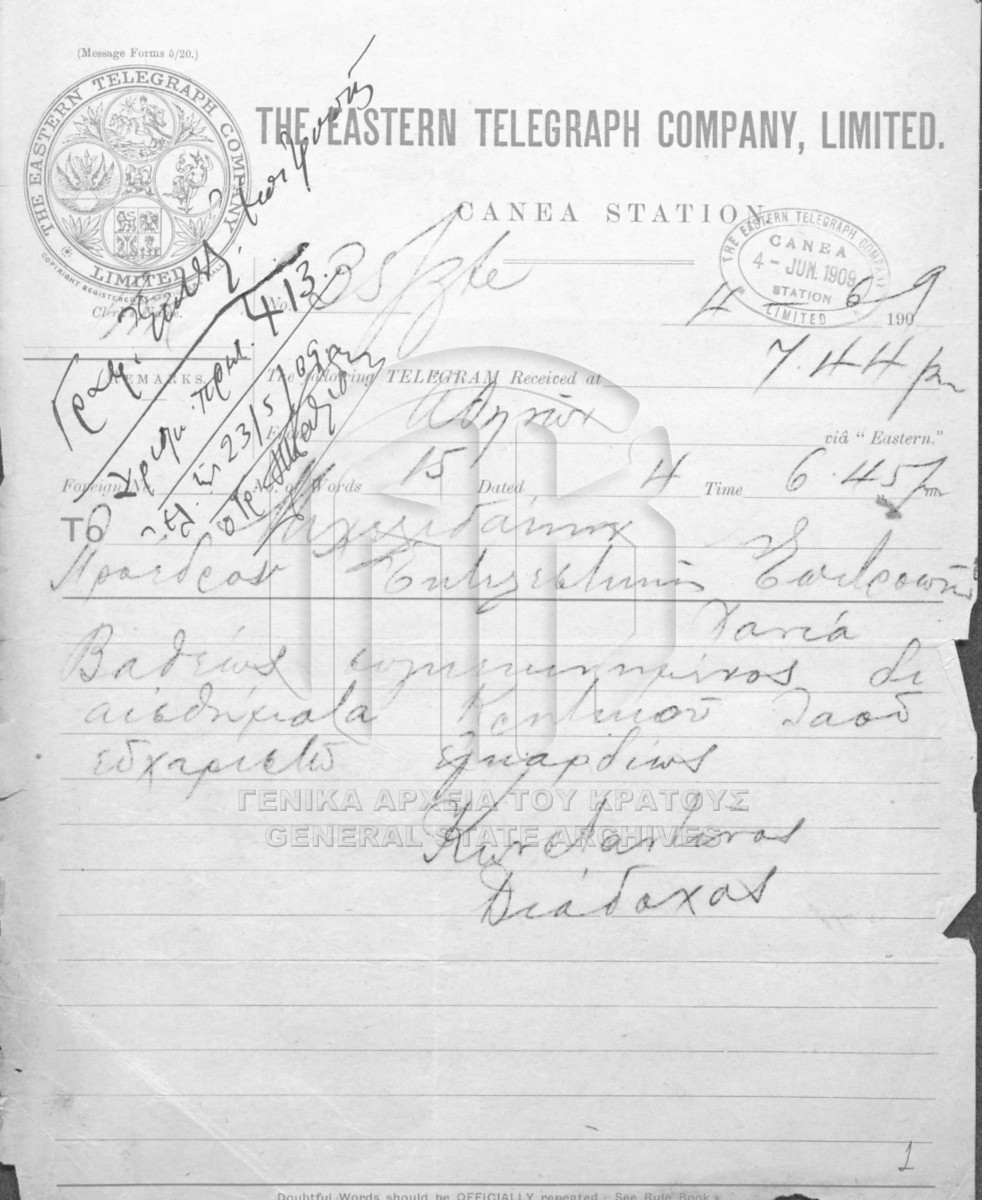 (Message Forms 5/20.)
THE EASTERN TELEGRAPH COMPANY
LIMITED
COPYRIGHT REGISTERED
THE EASTERN TELEGRAPH COMPANY, LIMITED.
CANEA STATION
THE EASTERN TELEGRAPH COMPANY
CANEA
4 - JUN. 1909
STATION
LIMITED
Clerk's Name.
No.
4 6 1909
REMARKS.
413
23/5/09
The following TELEGRAM Received at 7.44 pm
From Αθηνών viâ "Eastern."
Foreign No. No. of Words 15 Dated 4 Time 6.45 pm
TO Μιχελιδάκην
Πρόεδρον Εκτελεστικής Επιτροπής
Χανιά
Βαθέως συγκεκινημένος δι
αισθήματα Κρητικού λαού
ευχαριστώ εγκαρδίως
ΓΕΝΙΚΑ ΑΡΧΕΙΑ ΤΟΥ ΚΡΑΤΟΥΣ
GENERAL STATE ARCHIVES
Κωνσταντίνος
Διάδοχος
1
Doubtful Words should be OFFICIALLY repeated. See Rule Book.